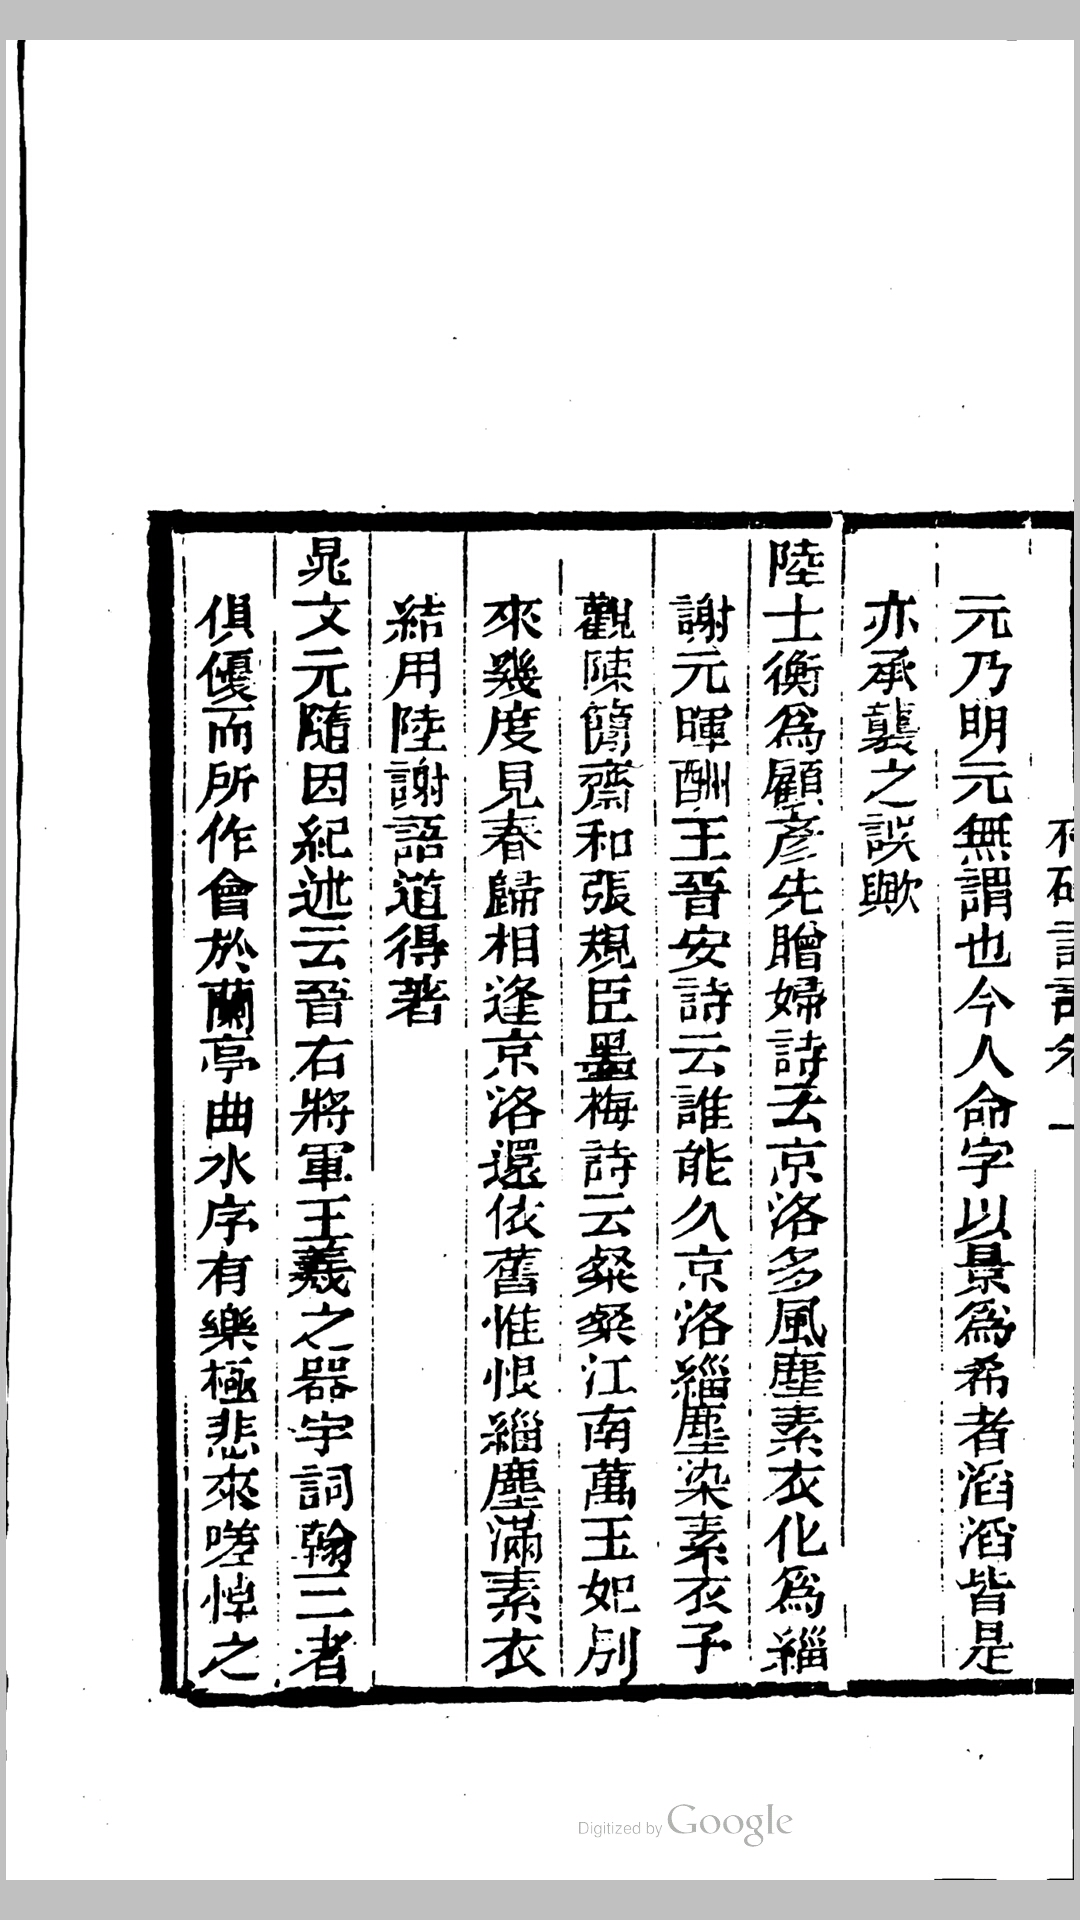 元乃明元無謂也今人命字以景爲希者滔滔皆是
亦承襲之誤歟
陸士衡爲顧彥先贈婦詩云京洛多風塵素衣化爲緇
謝元暉酬王晉安詩云誰能久京洛緇塵染素衣予
觀陳簡齋和張規臣墨梅詩云粲粲江南萬玉妃別
來幾度見春歸相逢京洛還依舊惟恨緇塵滿素衣
結用陸謝語道得著
晁文元隨因紀述云晉右將軍王羲之器宇詞翰三者
俱優而所作會於蘭亭曲水序有樂極悲來嗟悼之
Digitized by Google